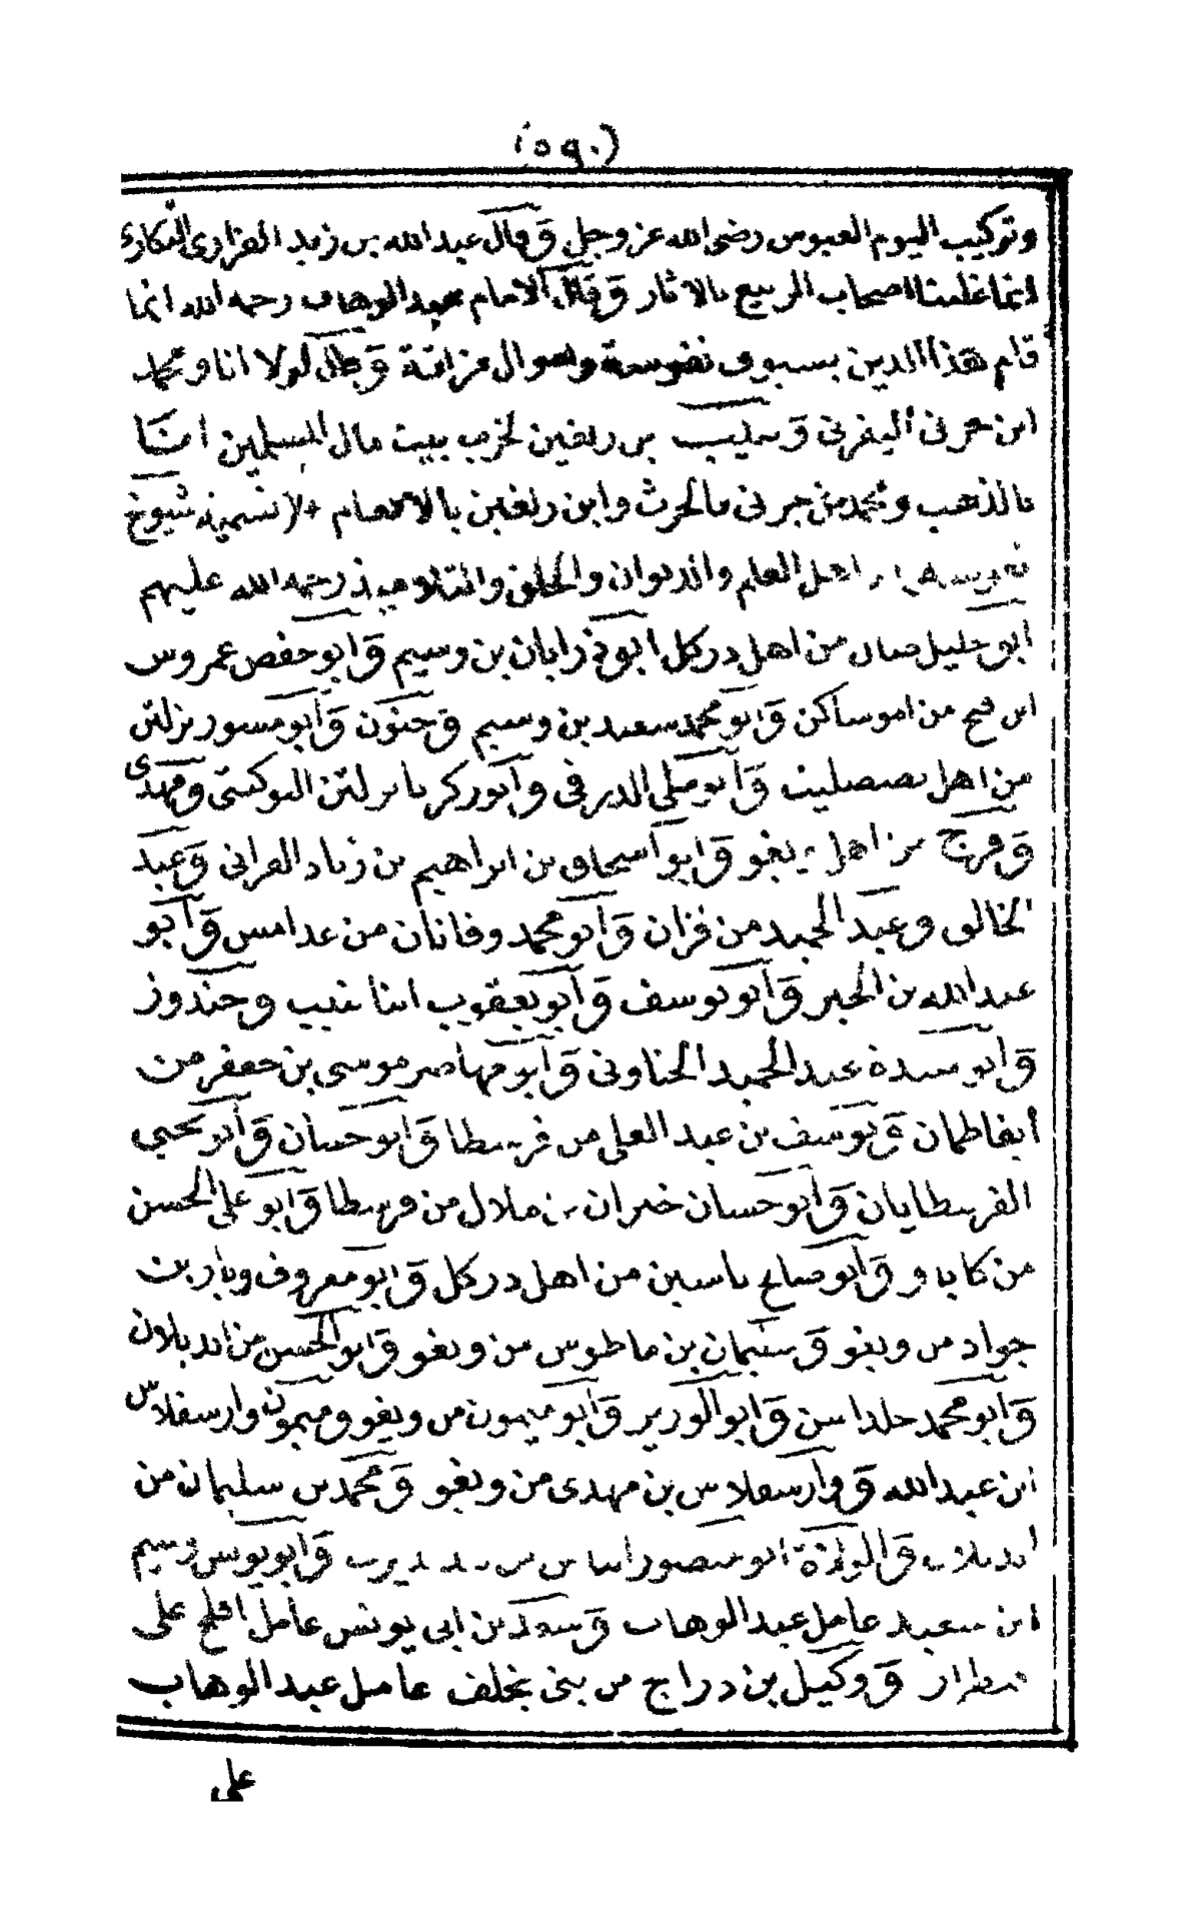 (٥٩٠)
وتركيب اليوم العبوس رضى الله عز وجل وقال عبد الله بن زيد الفزارى النكارى
انما غلبنا اصحاب الربيع بالاثار وقال الامام عبد الوهاب رحمه الله انما
قام هذا الدين بسيوف نفوسة واموال مزاتة وقال لولا انا ومحمد
ابن جرنى اليفرنى و بن زلغين لخرب بيت مال المسلمين انا
بالذهب ومحمد بن جرنى بالحرث وابن زلغين بالانعام تسمية شيوخ
نفوسة اهل العلم والديوان والحلق والتلاميذ رحمه الله عليهم
ابو خليل صال من اهل دركل ابو ذر ابان بن وسيم وابو حفص عمروس
ابن فتح من اموساكن وابو محمد سعيد بن وسيم وحنون وابو مسور يزلتن
من اهل وابو مكلى الدرفى وابو زكرياء يرلتن البوكتى ومهدى
وفرج من اهل ويغو وابو اسحاق بن ابراهيم بن زياد الفرانى وعبد
الخالق وعبد الحميد من فزان وابو محمد وفانان من غدامس وابو
عبد الله بن الخير وابو يوسف وابو يعقوب ابنا نبيب وجندوز
وابو عبيدة عبد الحميد الجناونى وابو مهاصر موسى بن جعفر من
ايفاطمان ويوسف بن عبد العلى من فرسطا وابو حسان وابو يحيى
الفرسطايان وابو حسان خيران بن ملال من فرسطا وابو على الحسن
من كاباو وابو صالح ياسين من اهل دركل وابو معروف ويار بن
جواد من ويغو وسليمان بن ماطوس من ويغو وابو الحسن من
وابو محمد خلداسن وابو الوزير وابو ميمون من ويغو وميمون وارسفلاس
ابن عبد الله و وارسفلاس بن مهدى من ويغو ومحمد بن سليمان من
ابو منصور الياس من وابو يونس وسيم
ابن سعيد عامل عبد الوهاب وسعد بن ابى يونس عامل افلح على
قنطرار ووكيل بن دراج من بنى يخلف عامل عبد الوهاب
على